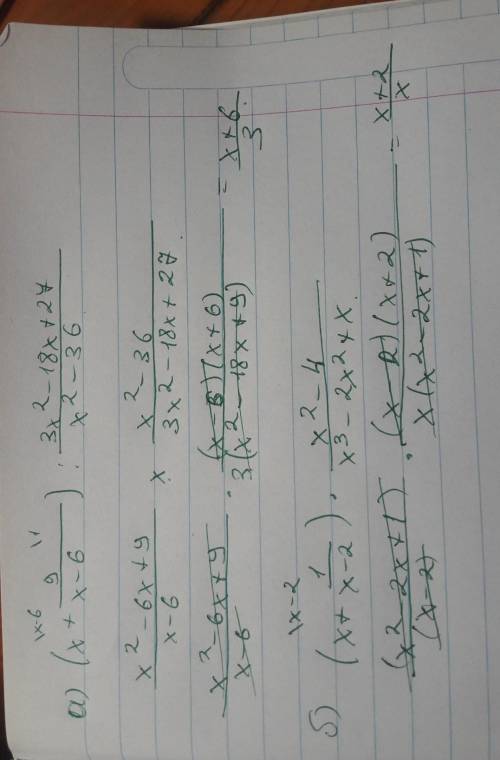 а) (x \x-6 + 9/(x-6) \1) : (3x²-18x+27)/(x²-36)
(x²-6x+9)/(x-6) × (x²-36)/(3x²-18x+27)
(x²-6x+9)/(x-6) · ((x-6)(x+6))/(3(x²-18x+9)) = (x+6)/3
б) (x \x-2 + 1/(x-2)) · (x²-4)/(x³-2x²+x)
(x²-2x+1)/(x-2) · ((x-2)(x+2))/(x(x²-2x+1)) = (x+2)/x